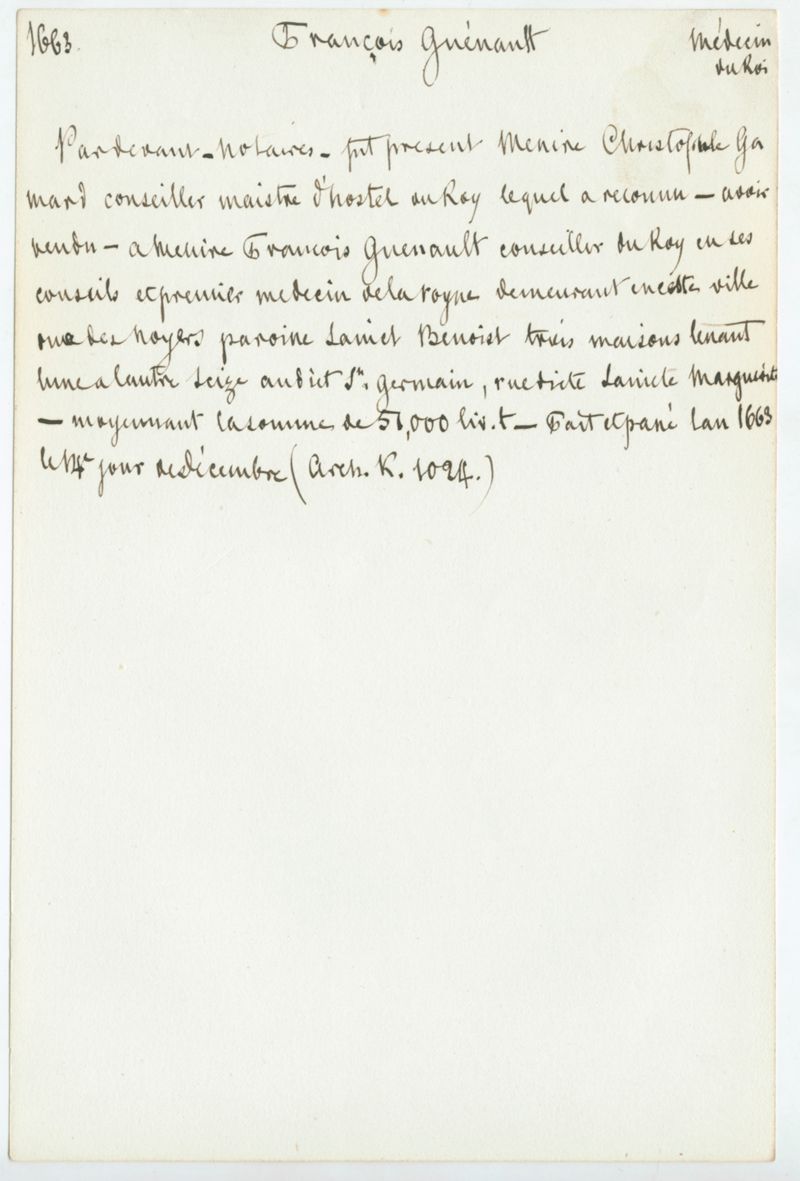 1663. François Guénault Médecin
du Roi
Pardevant - notaires - fut present Messire Christophle Ga
mard conseiller maistre d'hostel du Roy lequel a reconnu — avoir
vendu — a Messire François Guenault conseiller du Roy en ses
conseils et premier medecin de la royne demeurant en cette ville
rue des Noyers paroisse Sainct Benoist trois maisons tenant
lune a lautre seize audict St. Germain, rue dicte Saincte Marguerite
— moyennant la somme de 51,000 liv. t — Fait et passé lan 1663
le 14e jour de décembre (Arch. K. 1024.)